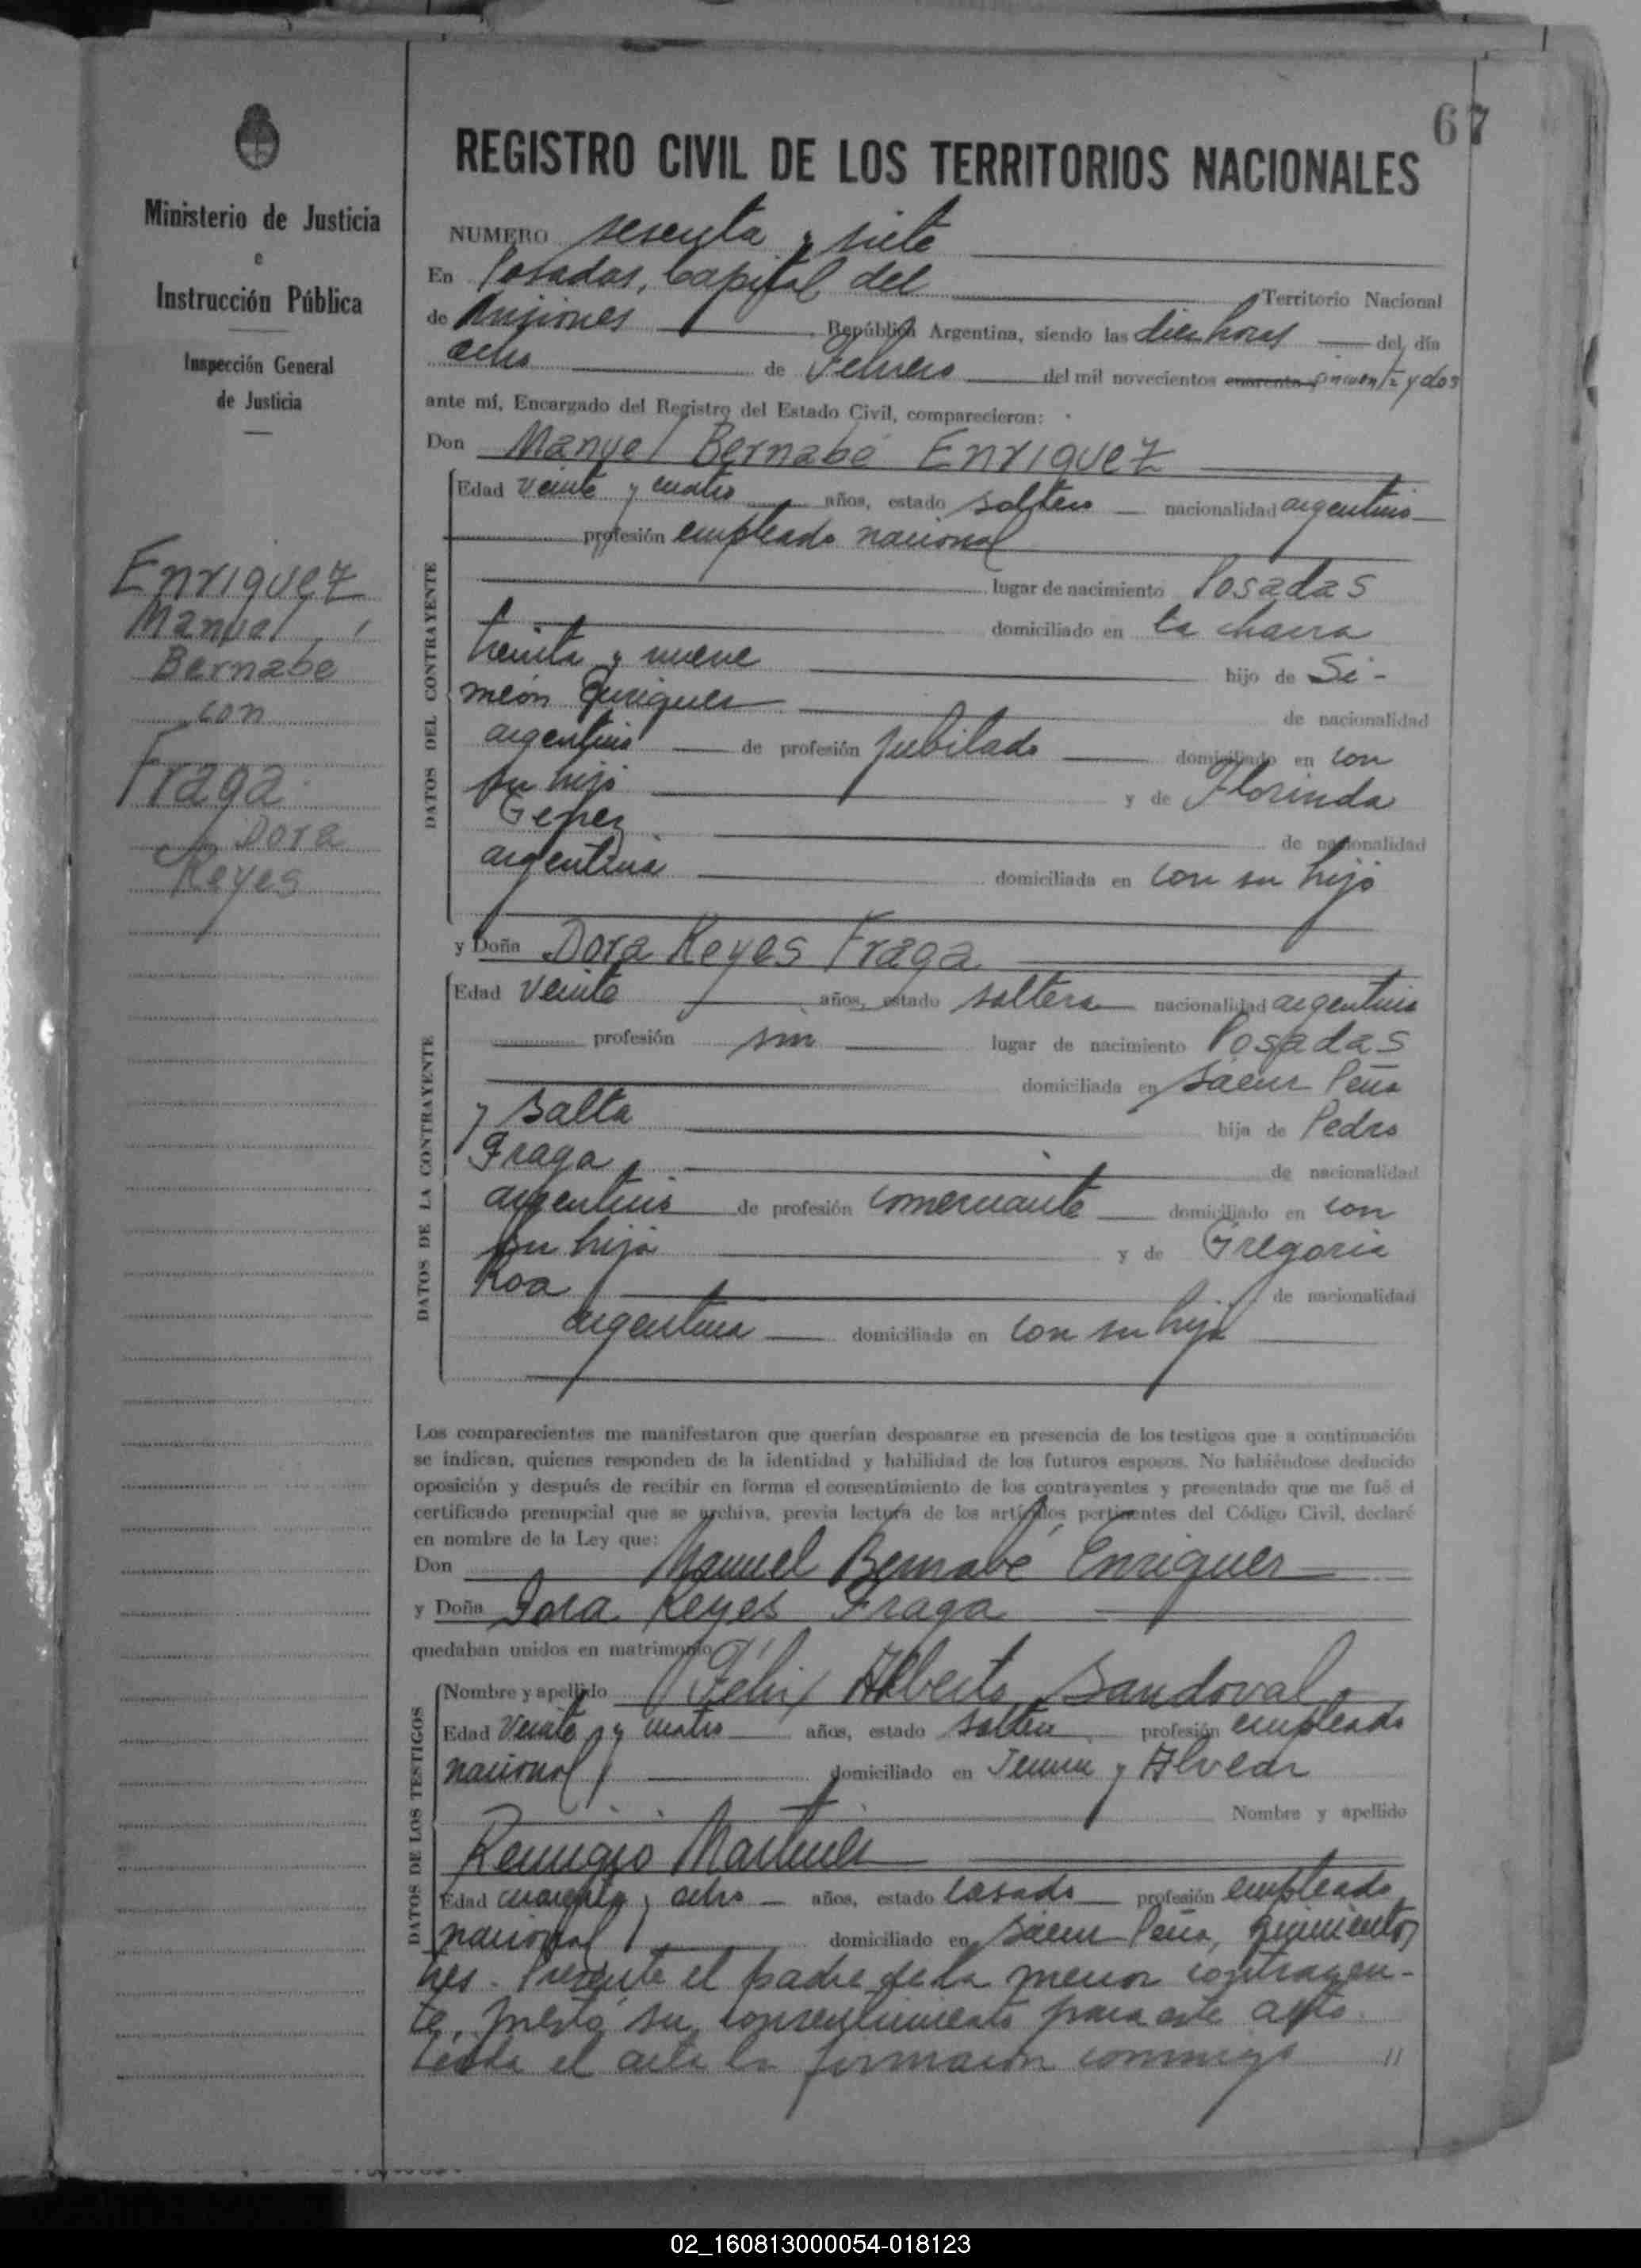 67
Ministerio de Justicia
e
Instrucción Pública
Inspección General
de Justicia
Enriquez
Manuel
Bernabe
con
Fraga
Dora
Reyes
REGISTRO CIVIL DE LOS TERRITORIOS NACIONALES
NUMERO sesenta y siete
En Posadas, Capital del Territorio Nacional
de Misiones República Argentina, siendo las diez horas del día
ocho de Febrero del mil novecientos cuarenta y cincuenta y dos
ante mí, Encargado del Registro del Estado Civil, comparecieron:
Don Manuel Bernabé Enriquez
DATOS DEL CONTRAYENTE
Edad veinte y cuatro años, estado soltero nacionalidad argentino
profesión empleado nacional
lugar de nacimiento Posadas
domiciliado en la chacra
treinta y nueve hijo de Si-
meón Enriquez de nacionalidad
argentino de profesión jubilado domiciliado en con
su hijo y de Florinda
de nacionalidad
argentina domiciliada en con su hijo
y Doña Dora Reyes Fraga
DATOS DE LA CONTRAYENTE
Edad veinte años, estado soltera nacionalidad argentina
profesión sin lugar de nacimiento Posadas
domiciliada en Saenz Peña
y Salta hija de Pedro
Fraga de nacionalidad
argentino de profesión comerciante domiciliado en con
su hija y de Gregoria
Roa de nacionalidad
argentina domiciliada en con su hija
Los comparecientes me manifestaron que querían desposarse en presencia de los testigos que a continuación
se indican, quienes responden de la identidad y habilidad de los futuros esposos. No habiéndose deducido
oposición y después de recibir en forma el consentimiento de los contrayentes y presentado que me fué el
certificado prenupcial que se archiva, previa lectura de los artículos pertinentes del Código Civil, declaré
en nombre de la Ley que:
Don Manuel Bernabé Enriquez
y Doña Dora Reyes Fraga
quedaban unidos en matrimonio
DATOS DE LOS TESTIGOS
Nombre y apellido Félix Alberto Sandoval
Edad veinte y cuatro años, estado soltero profesión empleado
nacional domiciliado en y Alvear
Nombre y apellido
Remigio Martinez
Edad cuarenta y ocho años, estado casado profesión empleado
nacional domiciliado en Saenz Peña, quinientos
tres. Presente el padre de la menor contrayen-
te, prestó su consentimiento para este acto.
Leida el acta la firmaron conmigo //
02_160813000054-018123